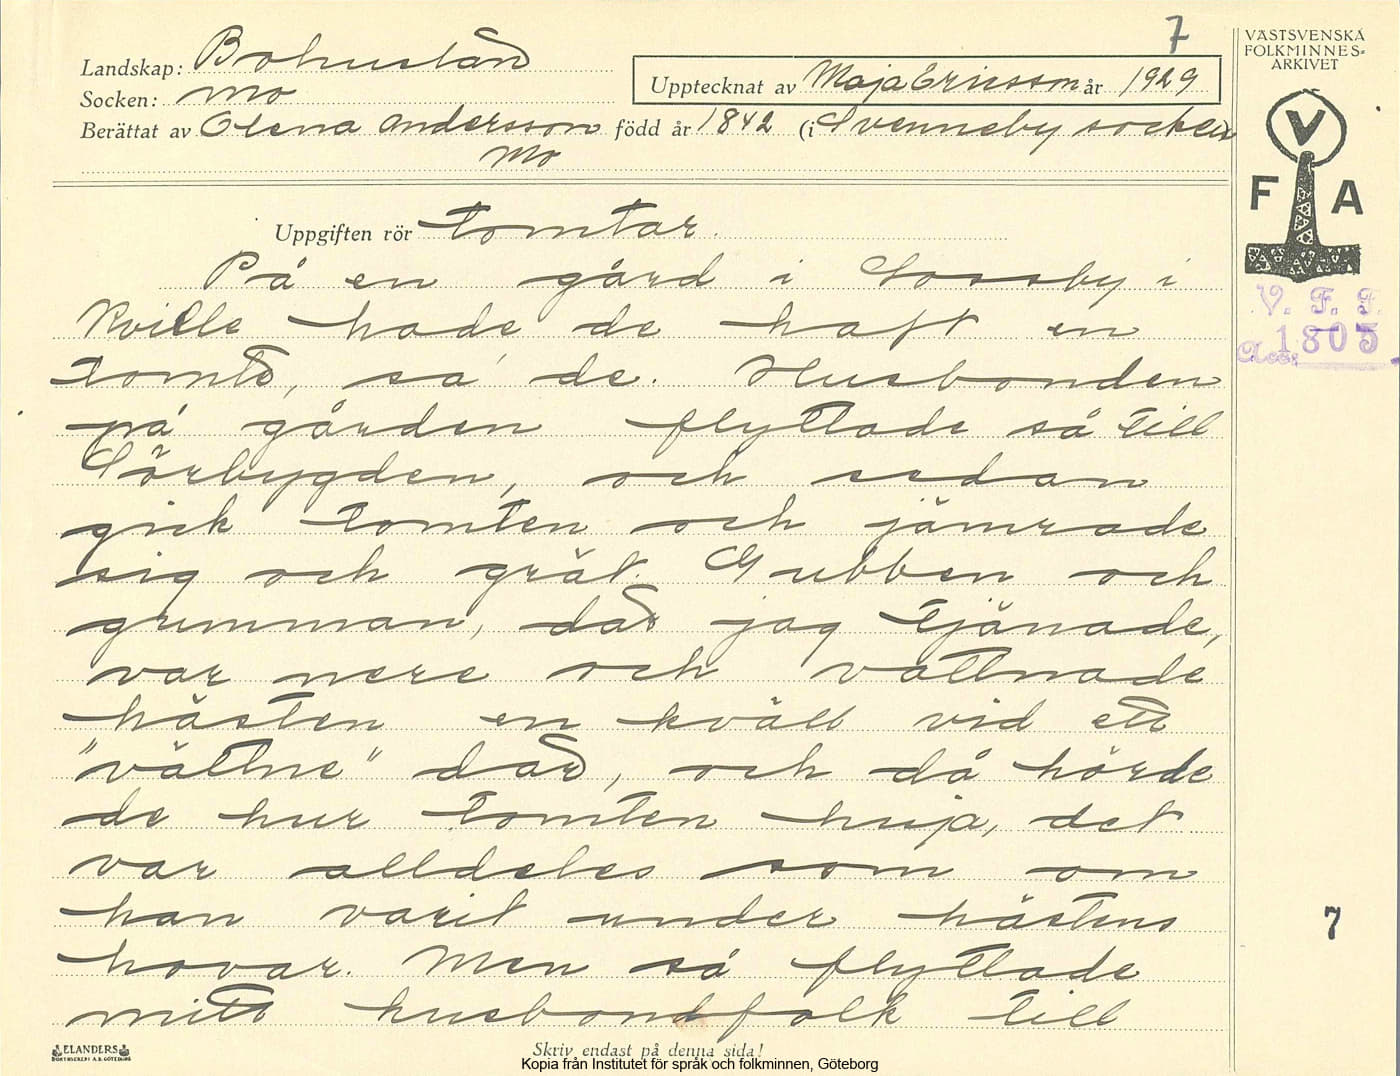 7
Landskap: Bohuslän
Socken: Mo
Upptecknat av Maja Ericsson år 1929
Berättat av Olena Andersson född år 1842 (i Svenneby socken)
Mo
VÄSTSVENSKA
FOLKMINNES-
ARKIVET
V
F A
V. F. F.
Acc. 1805
Uppgiften rör tomtar.
På en gård i Lossby i
Kville hade de haft en
tomte, sa de. Husbonden
på gården flyttade så till
Sörbygden, och sedan
gick tomten och jämrade
sig och grät. Gubben och
gumman, där jag tjänade,
var nere och vattnade
hästen en kväll vid ett
"vättne" där, och då hörde
de hur tomten huja, det
var alldeles som om
han varit under hästens
hovar. Men så flyttade
mitt husbondfolk till
7
ELANDERS
BOKTRYCKERI A.B. GÖTEBORG
Skriv endast på denna sida!
Kopia från Institutet för språk och folkminnen, Göteborg